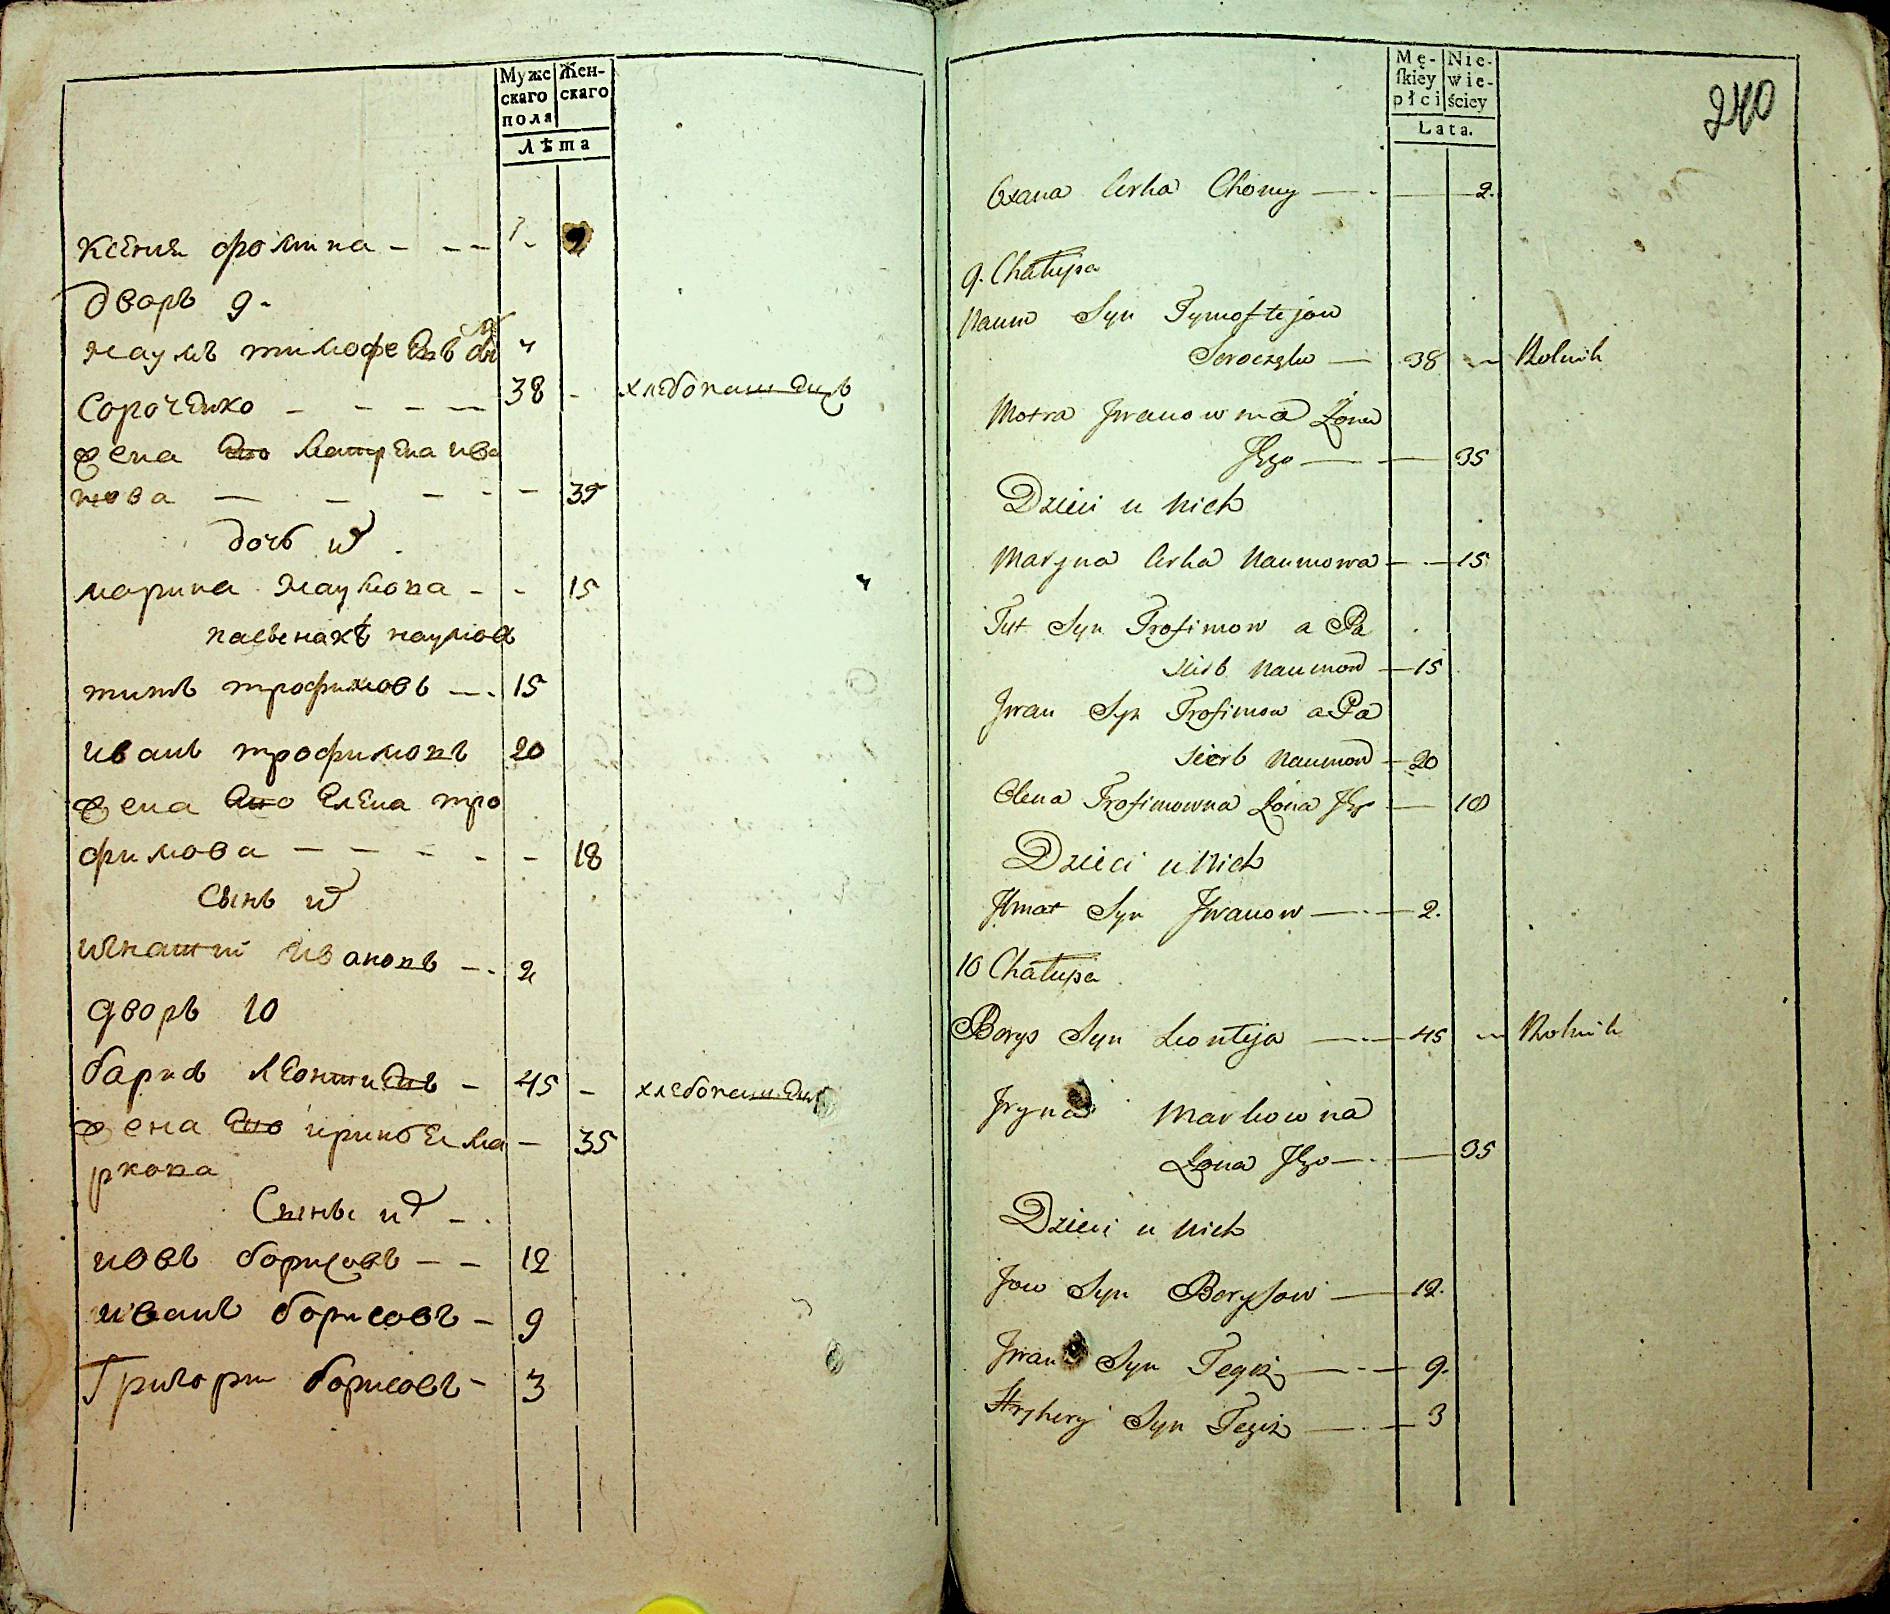 Муже
скаго
поля
Жен-
скаго
Лѣта
Ксения фомина - - -
дворъ 9.
Наумъ тимофеевъ сынъ
Сороченко - - - - 38 - хлебопашецъ
жена ево Матрена ива
нова - - - - - 35
дочь их
марина Наумова - - 15
пасынки наумов
титъ трофимовъ - 15
иванъ трофимовъ 20
жена ево Елена тро
фимова - - - - - 18
Сынъ их
игнатий Ивановъ - - 2
дворъ 10
барис леонтиевъ - 45 - хлебопашецъ
жена ево ирина ма - 35
ркова
Сыны их - -
иовъ борисовъ - - 12
иванъ борисовъ - 9
Григори борисовъ - 3
Mę-
skiey
płci
Nie-
wie-
ściey
Lata.
240
Oxana Corka Chomy - - 2.
9. Chałupa
Naum Syn Tymoftejow
Soroczenko - 38 - Rolnik
Motra Jwanowna Żona
Jego - - 35
Dzieci u Nich
Maryna Corka Naumowa - - 15
Tyt Syn Trofimow a Pa
sierb Naumow - 15
Jwan Syn Trofimow a Pa
sierb Naumow - 20
Olena Trofimowna Żona Jego - 18
Dzieci u Nich
Jhnat Syn Jwanow - - 2.
10 Chałupa
Borys Syn Leonteja - - 45 - Rolnik
Jryna Markowna
Żona Jego - - 35
Dzieci u Nich
Jow Syn Borysow - 12.
Jwan Syn Tegiż - - 9.
Hryhery Syn Tegiż - - 3